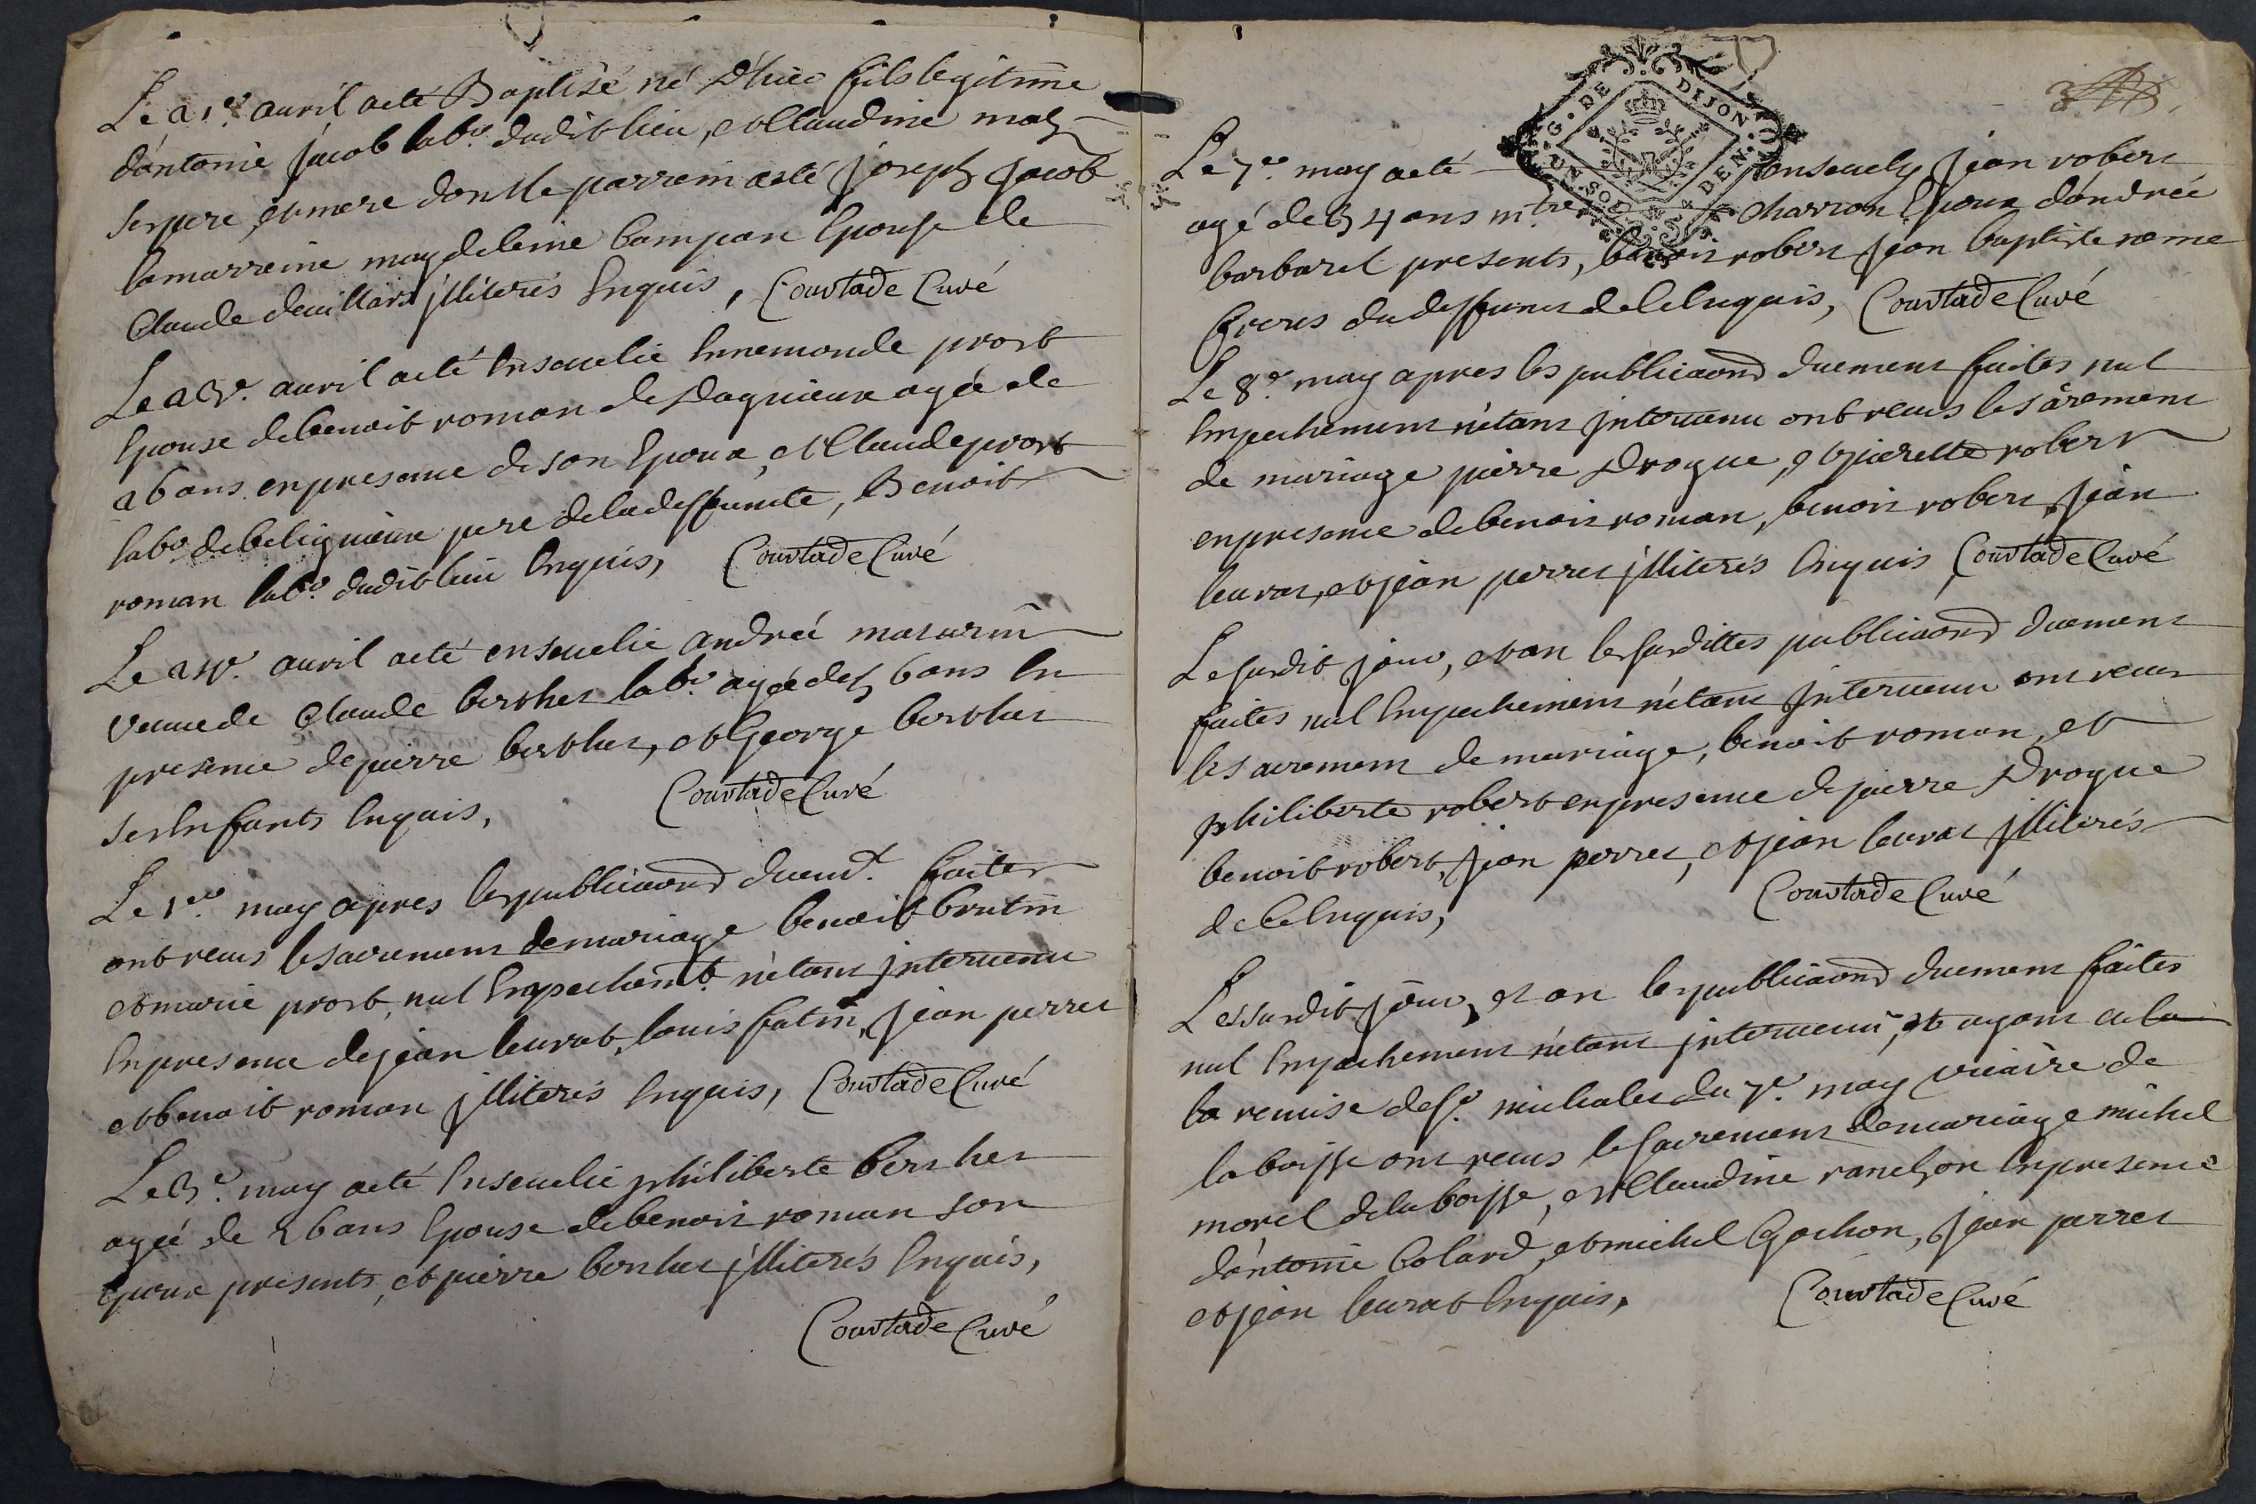 Le 21.e avril a eté Baptisé né d'hier fils legitime
d'antoine jacob lab.r dudit lieu, et Claudine
ses pere, et mere dont le parrein a eté joseph jacob
la marreine magdeleine Campan Epouse de
Claude deuillars jlliterés Enquis, Courtade Curé
Le 23.e avril a eté Ensevelie Ennemonde prost
Epouse de benoit roman de Dagnieux agée de
26 ans en presence de son Epoux, et Claude prost
lab.r de beligneux pere de la deffuncte, Benoit
roman lab.r dudit lieu Enquis, Courtade Curé
Le avril a eté ensevelie andrée maturin
veuve de Claude berthet lab.r agée de 56 ans En
presence de pierre berthet, et George berthet
ses Enfants Enquis, Courtade Curé
Le 1.er may apres les publicaons duemt. faites
ont receus le sacrement de mariage benoit brutin
et marie prost, nul Empechemt. n'etant jntervenu
En presence de jean leurat, louis fatin, jean perret
et benoit roman jlliterés Enquis, Courtade Curé
Le 3.e may a eté Ensevelie philiberte berthet
agée de 26 ans Epouse de benoit roman son
Epoux presents, et pierre berthet jlliterés Enquis,
Courtade Curé
3
G. DE DIJON
UN SOL DEN.
Le 7.e may a eté Ensevely jean robert
agé de 54 ans m.tre Charron Epoux d'andrée
barbaret presents, benoit robert jean baptiste
freres du deffunct de ce Enquis, Courtade Curé
Le 8.e may apres les publicaons duement faites nul
Empechement n'etant jntervenu ont receus le sacrement
de mariage pierre Drogue, et pierrette robert
en presence de benoit roman, benoit robert, jean
leurat, et jean perret jlliterés Enquis Courtade Curé
Le susdit jour, et an les susdittes publicaons duement
faites nul Empechement n'etant jntervenu ont receus
le sacrement de mariage, benoit roman, et
philiberte robert en presence de pierre Drogue
benoit robert, jean perret, et jean leurat jlliterés
de ce Enquis, Courtade Curé
Le susdit jour, et an les publicaons duement faites
nul Empechement n'etant jntervenu, et ayant eu la
la remise de S.r michalet du 7.e may vicaire de
la boisse ont receus le sacrement de mariage michel
morel de la boisse, et Claudine ranchon En presence
d'antoine Colard, et michel Cochon, jean perret
et jean leurat Enquis, Courtade Curé